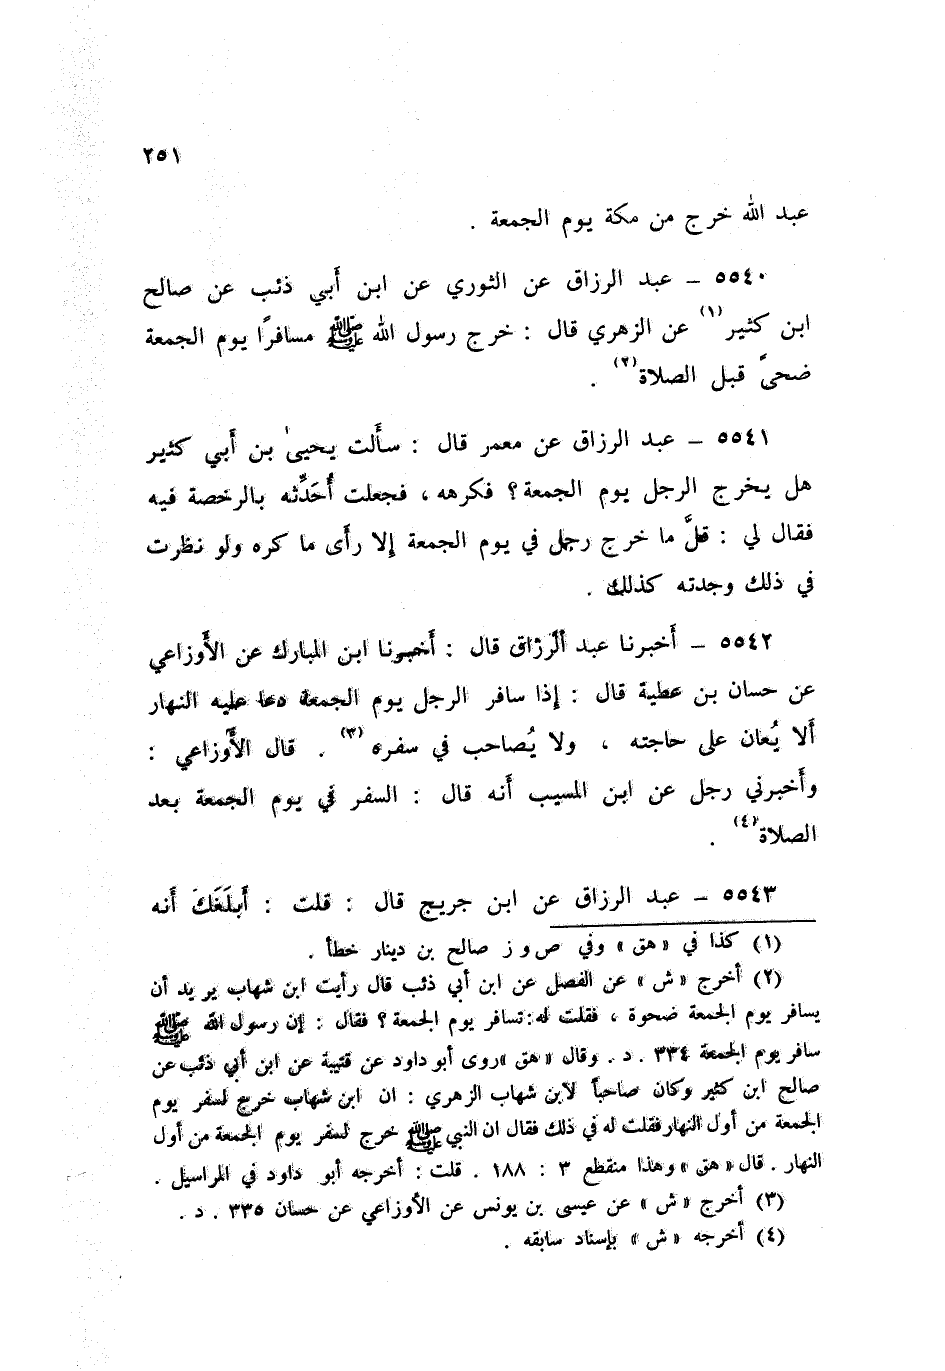 ٢٥١
عبد الله خرج من مكة يوم الجمعة .
٥٥٤٠ – عبد الرزاق عن الثوري عن ابن أبي ذئب عن صالح
ابن كثير(١) عن الزهري قال : خرج رسول الله ﷺ مسافرًا يوم الجمعة
ضحىً قبل الصلاة(٢) .
٥٥٤١ – عبد الرزاق عن معمر قال : سألت يحيىٰ بن أبي كثير
هل يخرج الرجل يوم الجمعة؟ فكرهه، فجعلت أُحَدِّثه بالرخصة فيه
فقال لي : قلَّ ما خرج رجل في يوم الجمعة إلا رأى ما كره ولو نظرت
في ذلك وجدته كذلك .
٥٥٤٢ – أخبرنا عبد الرزاق قال : أخبرنا ابن المبارك عن الأوزاعي
عن حسان بن عطية قال : إذا سافر الرجل يوم الجمعة دعا عليه النهار
ألا يُعان على حاجته ، ولا يُصاحب في سفره(٣) . قال الأوزاعي :
وأخبرني رجل عن ابن المسيب أنه قال : السفر في يوم الجمعة بعد
الصلاة(٤) .
٥٥٤٣ – عبد الرزاق عن ابن جريج قال : قلت : أبلَغَكَ أنه
(١) كذا في «هق» وفي ص و ز صالح بن دينار خطأ .
(٢) أخرج «ش» عن الفصل عن ابن أبي ذئب قال رأيت ابن شهاب يريد أن
يسافر يوم الجمعة ضحوة ، فقلت له: تسافر يوم الجمعة؟ فقال : إن رسول الله ﷺ
سافر يوم الجمعة ٣٣٤ . د . وقال «هق» روى أبو داود عن قتيبة عن ابن أبي ذئب عن
صالح ابن كثير وكان صاحباً لابن شهاب الزهري : ان ابن شهاب خرج لسفر يوم
الجمعة من أول النهار فقلت له في ذلك فقال ان النبي ﷺ خرج لسفر يوم الجمعة من أول
النهار . قال «هق» وهذا منقطع ٣ : ١٨٨ . قلت : أخرجه أبو داود في المراسيل .
(٣) أخرج «ش» عن عيسى بن يونس عن الأوزاعي عن حسان ٣٣٥ . د .
(٤) أخرجه «ش» بإسناد سابقه .